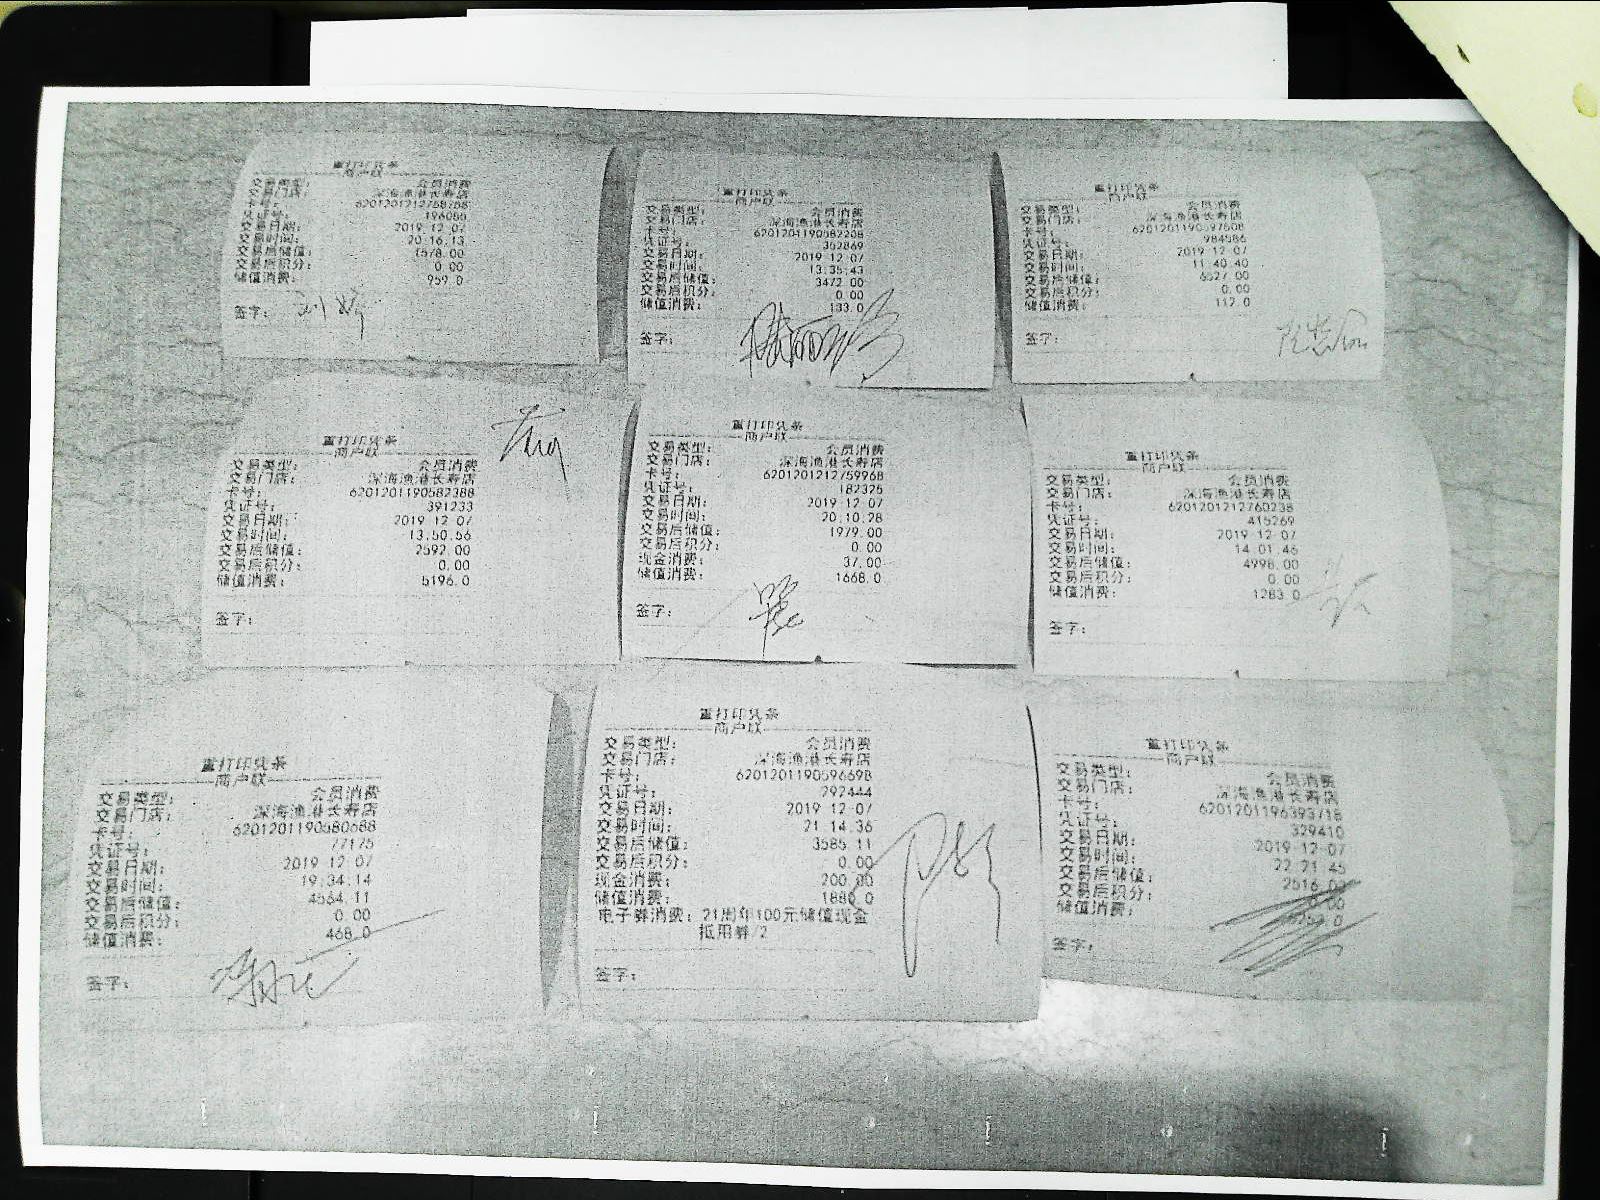 重打印凭条
商户联
交易类型: 会员消费
交易门店: 深海渔港长寿店
卡号: 6201201212758758
凭证号: 196086
交易日期: 2019-12-07
交易时间: 20:16:13
交易后储值: 1578.00
交易后积分: 0.00
储值消费: 959.0
签字:
重打印凭条
商户联
交易类型: 会员消费
交易门店: 深海渔港长寿店
卡号: 6201201190582208
凭证号: 352869
交易日期: 2019-12-07
交易时间: 13:35:43
交易后储值: 3472.00
交易后积分: 0.00
储值消费: 133.0
签字:
重打印凭条
商户联
交易类型: 会员消费
交易门店: 深海渔港长寿店
卡号: 6201201190597608
凭证号: 984586
交易日期: 2019-12-07
交易时间: 11:40:40
交易后储值: 6527.00
交易后积分: 0.00
储值消费: 112.0
签字:
重打印凭条
商户联
交易类型: 会员消费
交易门店: 深海渔港长寿店
卡号: 6201201190582388
凭证号: 391233
交易日期: 2019-12-07
交易时间: 13:50:56
交易后储值: 2592.00
交易后积分: 0.00
储值消费: 5196.0
签字:
重打印凭条
商户联
交易类型: 会员消费
交易门店: 深海渔港长寿店
卡号: 6201201212759968
凭证号: 182325
交易日期: 2019-12-07
交易时间: 20:10:28
交易后储值: 1979.00
交易后积分: 0.00
现金消费: 37.00
储值消费: 1668.0
签字:
重打印凭条
商户联
交易类型: 会员消费
交易门店: 深海渔港长寿店
卡号: 6201201212760238
凭证号: 415269
交易日期: 2019-12-07
交易时间: 14:01:46
交易后储值: 4998.00
交易后积分: 0.00
储值消费: 1283.0
签字:
重打印凭条
商户联
交易类型: 会员消费
交易门店: 深海渔港长寿店
卡号: 6201201190580688
凭证号: 77175
交易日期: 2019-12-07
交易时间: 19:34:14
交易后储值: 4564.11
交易后积分: 0.00
储值消费: 468.0
签字:
重打印凭条
商户联
交易类型: 会员消费
交易门店: 深海渔港长寿店
卡号: 6201201190596698
凭证号: 292444
交易日期: 2019-12-07
交易时间: 21:14:36
交易后储值: 3585.11
交易后积分: 0.00
现金消费: 200.00
储值消费: 1880.0
电子券消费: 21周年100元储值现金
抵用券/2
签字:
重打印凭条
商户联
交易类型: 会员消费
交易门店: 深海渔港长寿店
卡号: 6201201196393718
凭证号: 329410
交易日期: 2019-12-07
交易时间: 22:21:45
交易后储值: 2516.00
交易后积分: 0.00
储值消费:
签字: